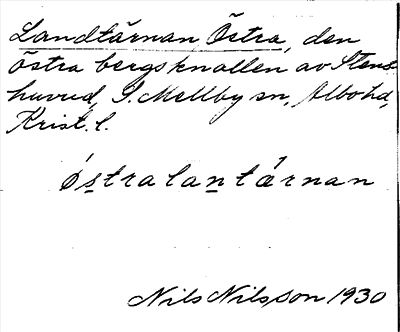 Landtärnan Östra, den
östra bergsknallen av Stens-
huvud, S. Mellby sn, Albo hd,
Krist. l.
óstralantǽrnan
Nils Nilsson 1930